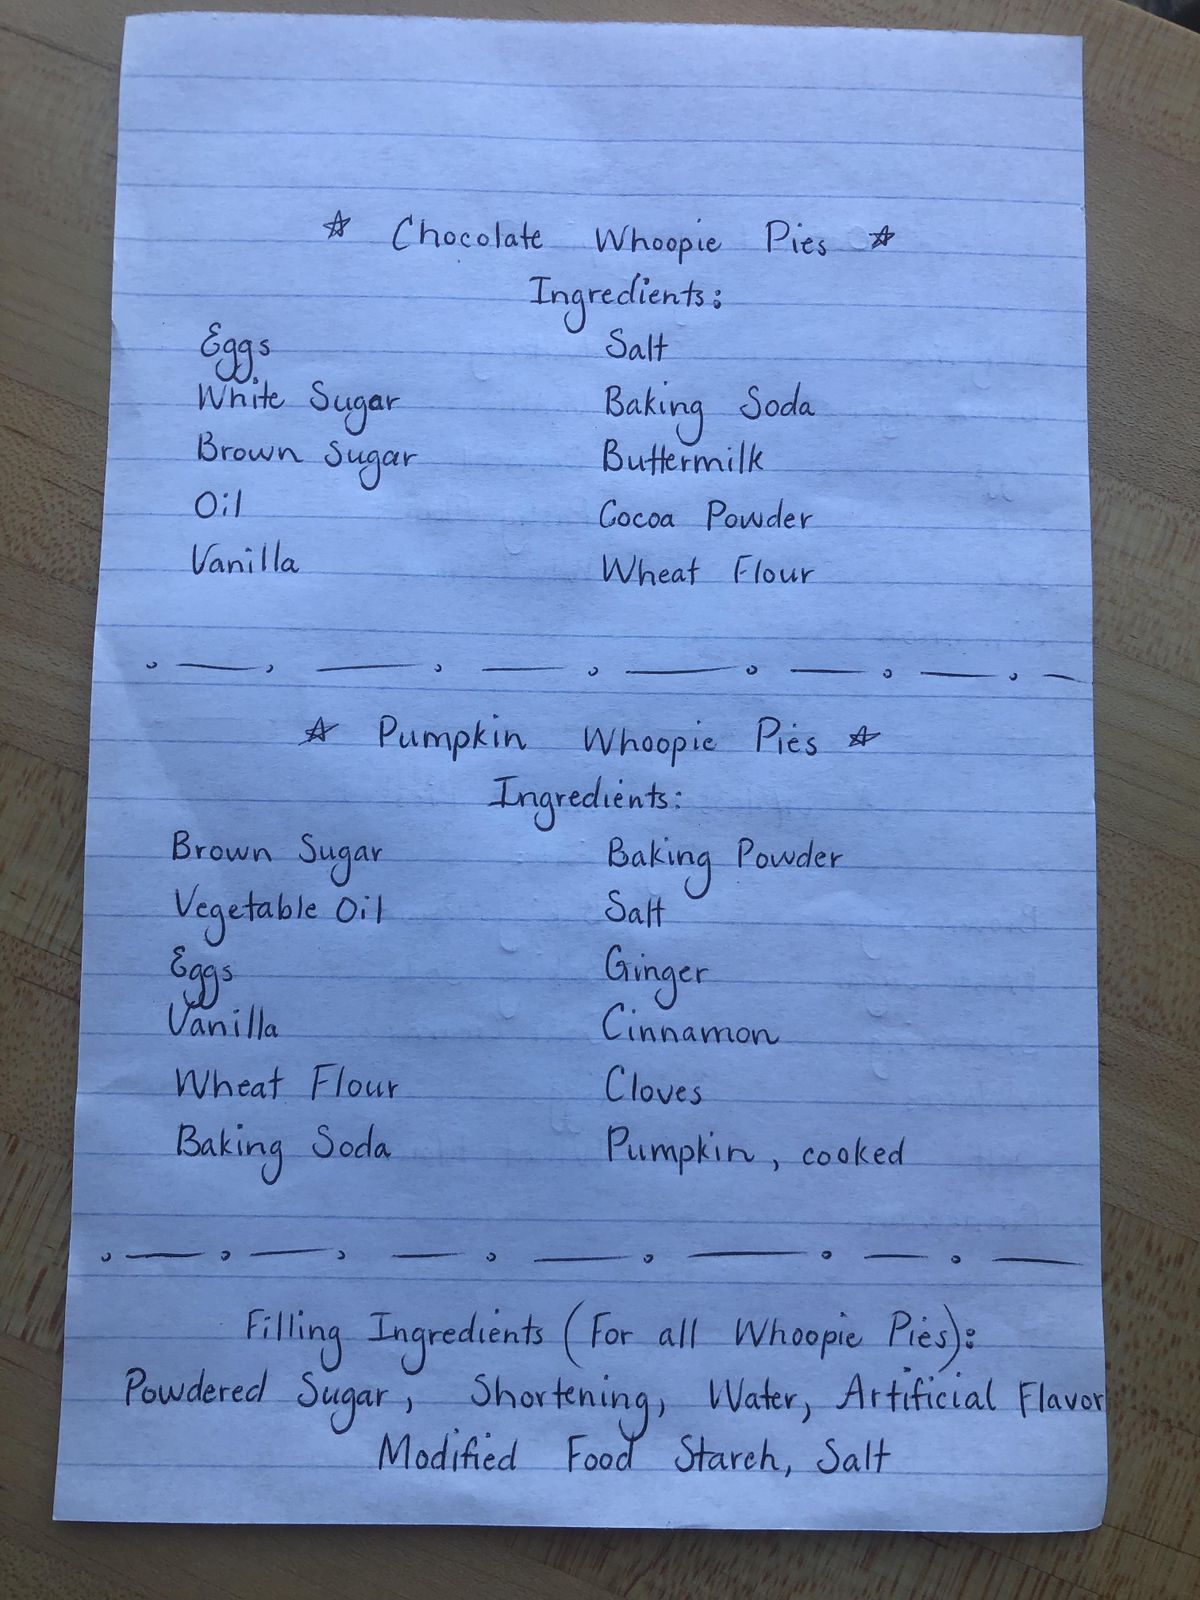 ☆ Chocolate Whoopie Pies ☆
Ingredients:
Eggs
White Sugar
Brown Sugar
Oil
Vanilla
Salt
Baking Soda
Buttermilk
Cocoa Powder
Wheat Flour
☆ Pumpkin Whoopie Pies ☆
Ingredients:
Brown Sugar
Vegetable Oil
Eggs
Vanilla
Wheat Flour
Baking Soda
Baking Powder
Salt
Ginger
Cinnamon
Cloves
Pumpkin, cooked
Filling Ingredients (For all Whoopie Pies):
Powdered Sugar, Shortening, Water, Artificial Flavor
Modified Food Starch, Salt